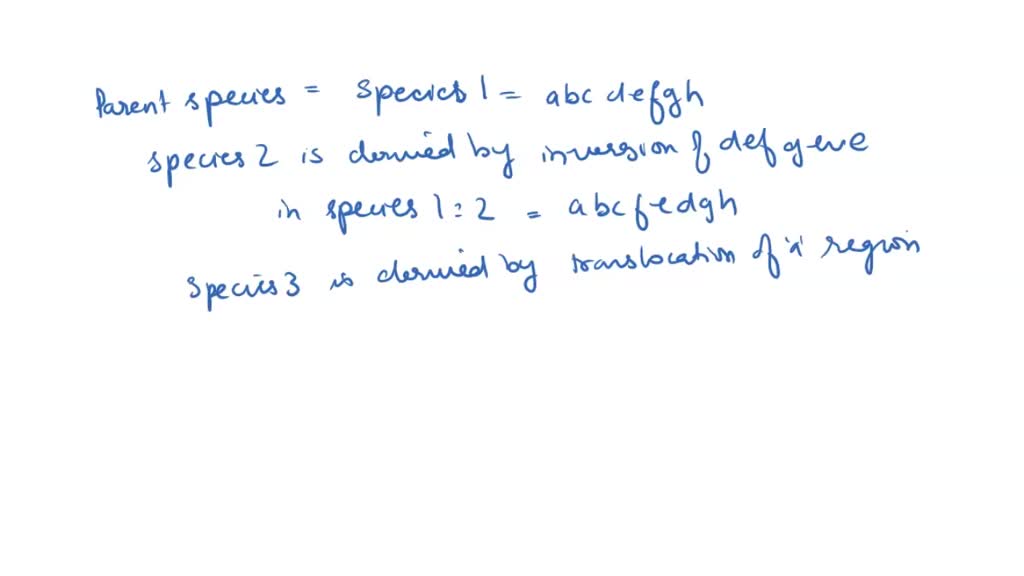 Parent species = species 1 = abc defgh
species 2 is derived by inversion of def gene
in species 1 : 2 = abc fedgh
species 3 is derived by translocation of 'a' region